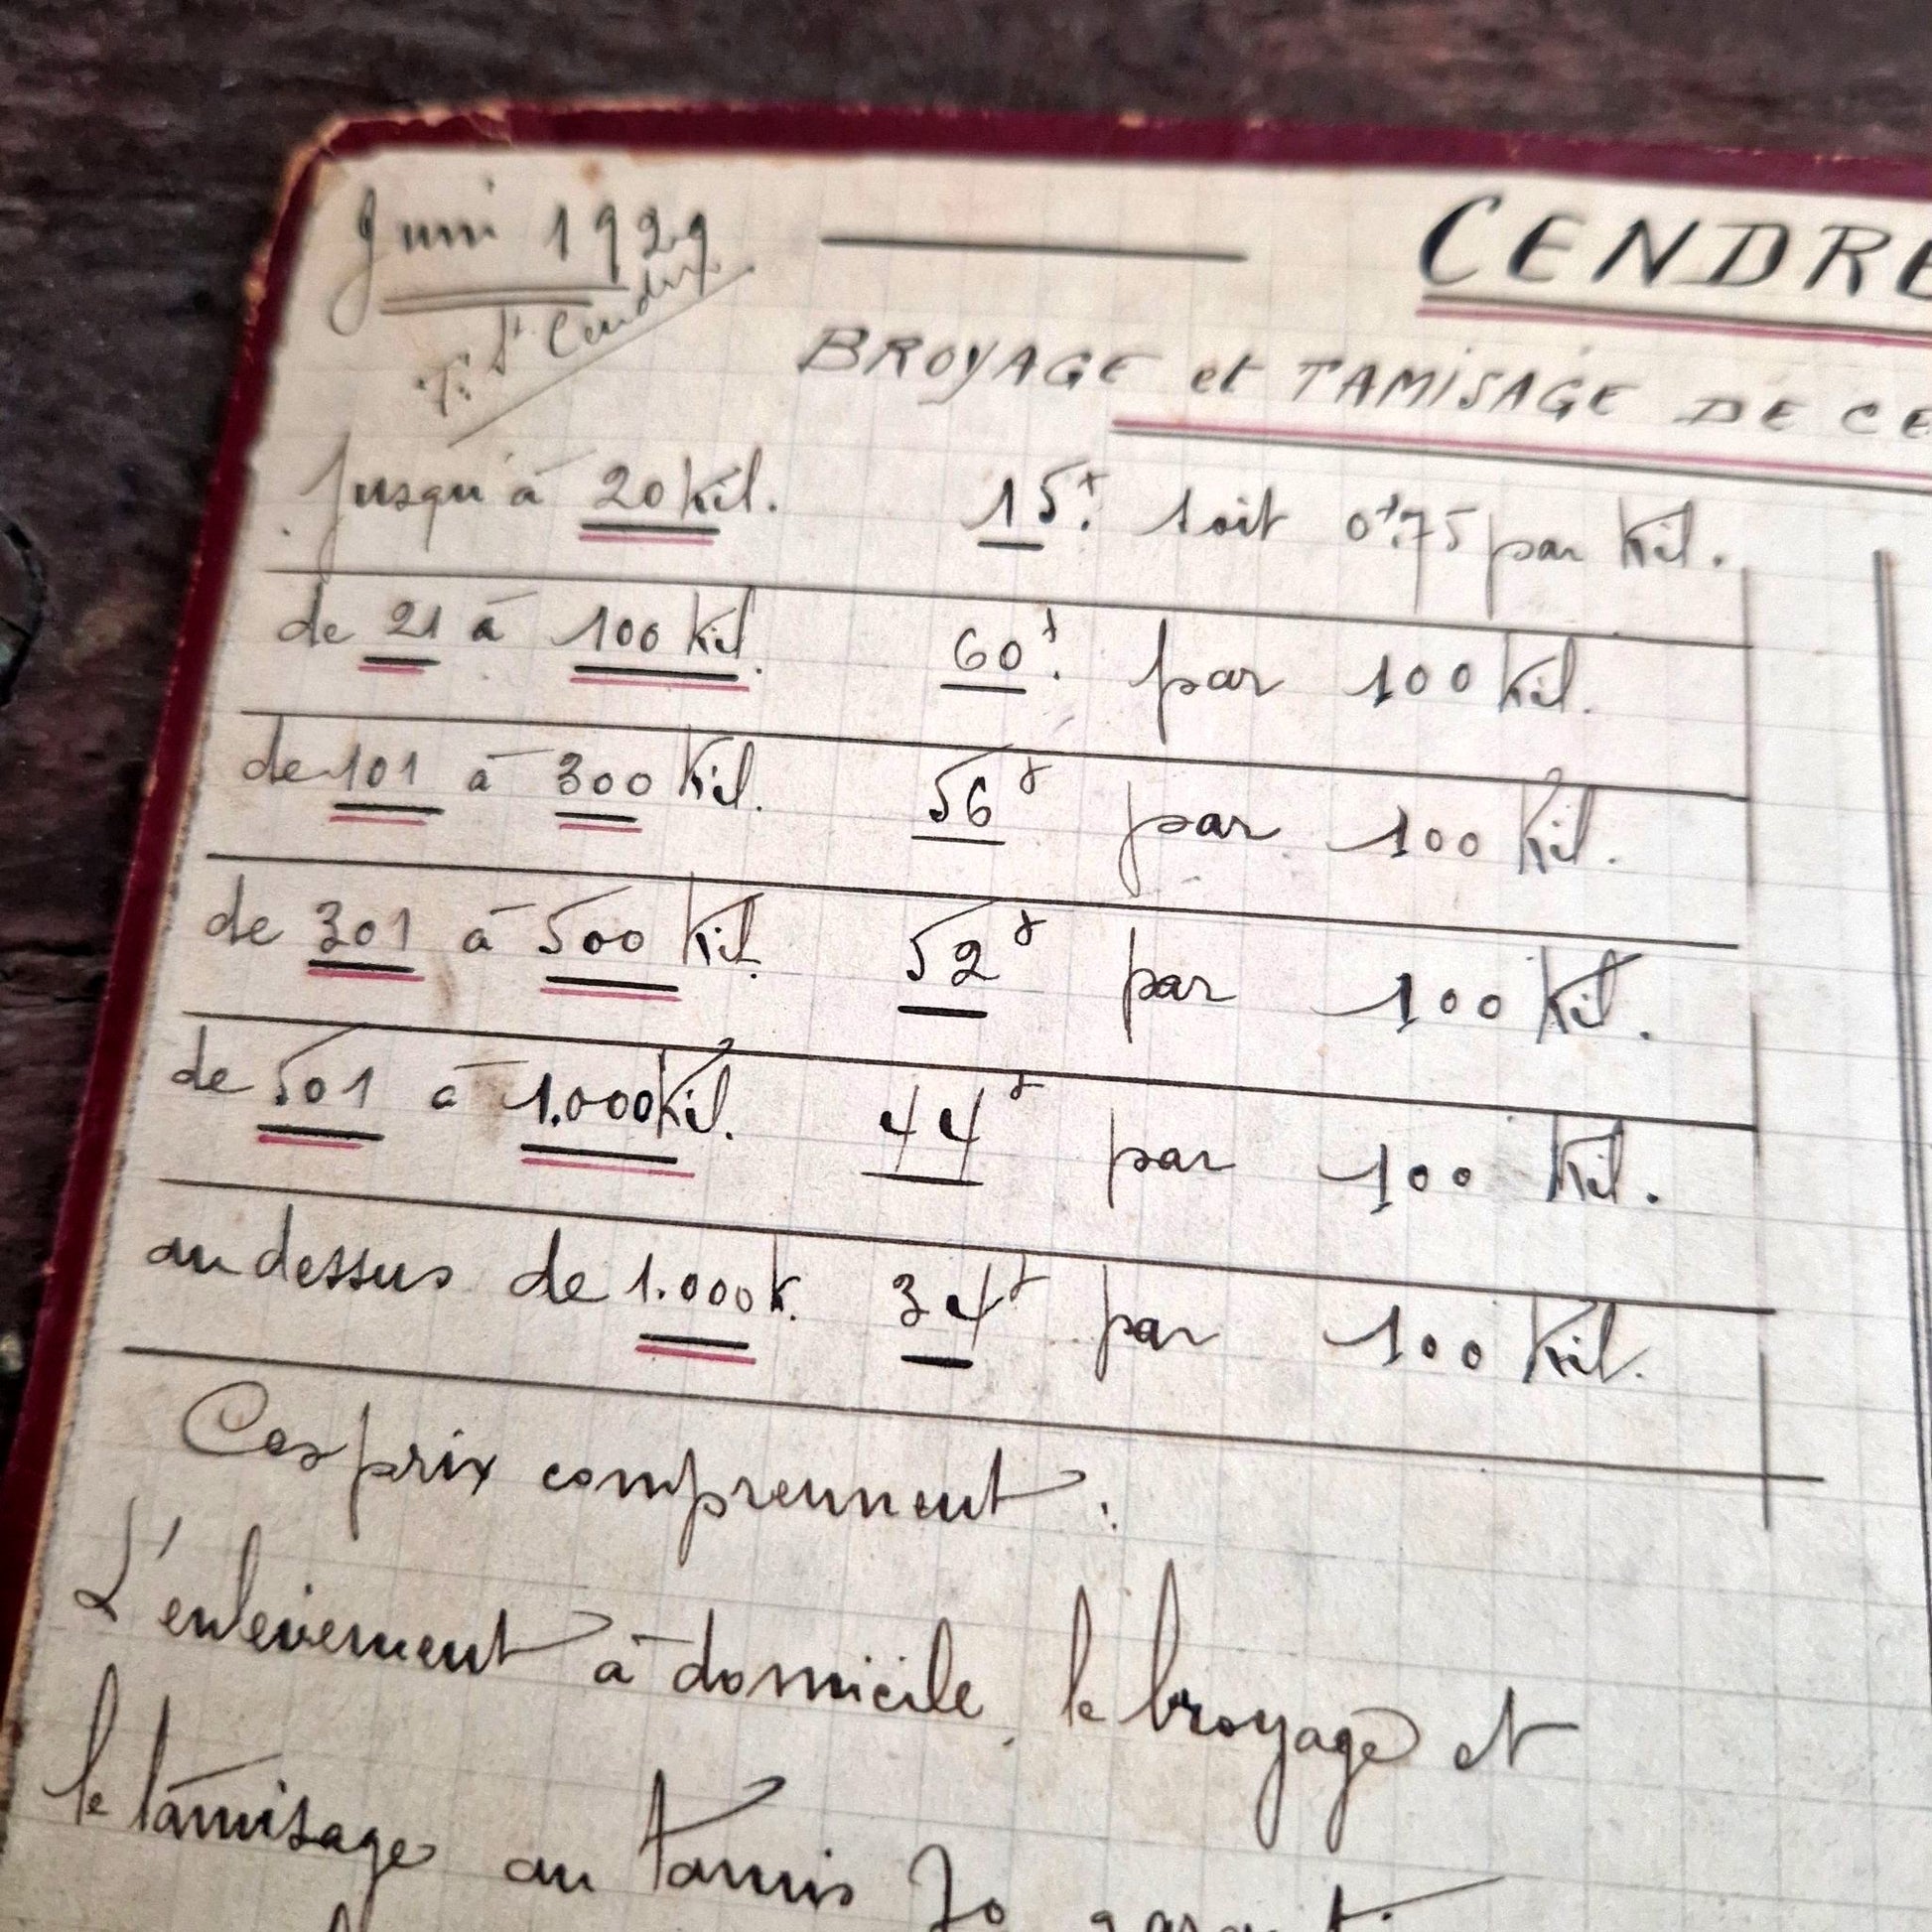 Juin 1929
CENDRE
BROYAGE et TAMISAGE DE CE
Jusqu'à 20 Kil. 15f. soit 0f.75 par Kil.
de 21 à 100 Kil. 60f. par 100 Kil.
de 101 à 300 Kil. 56f par 100 Kil.
de 301 à 500 Kil. 52f par 100 Kil.
de 501 à 1.000 Kil. 44f par 100 Kil.
au dessus de 1.000 K. 34f par 100 Kil.
Ces prix comprennent :
L'enlevement à domicile, le broyage et
le tamisage au tamis